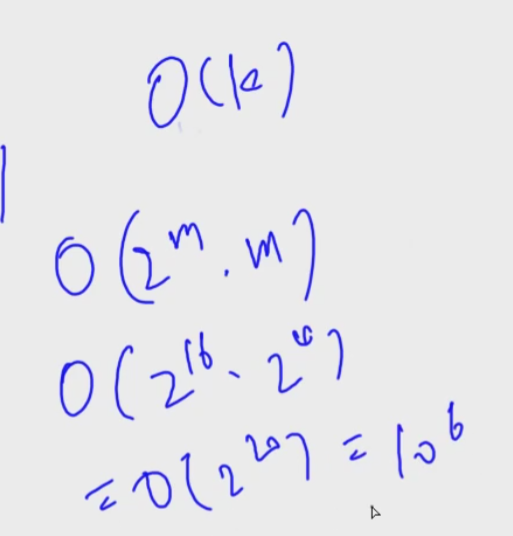 O(k)
O(2^m . m)
O(2^16 . 2^4)
= O(2^20) = 10^6